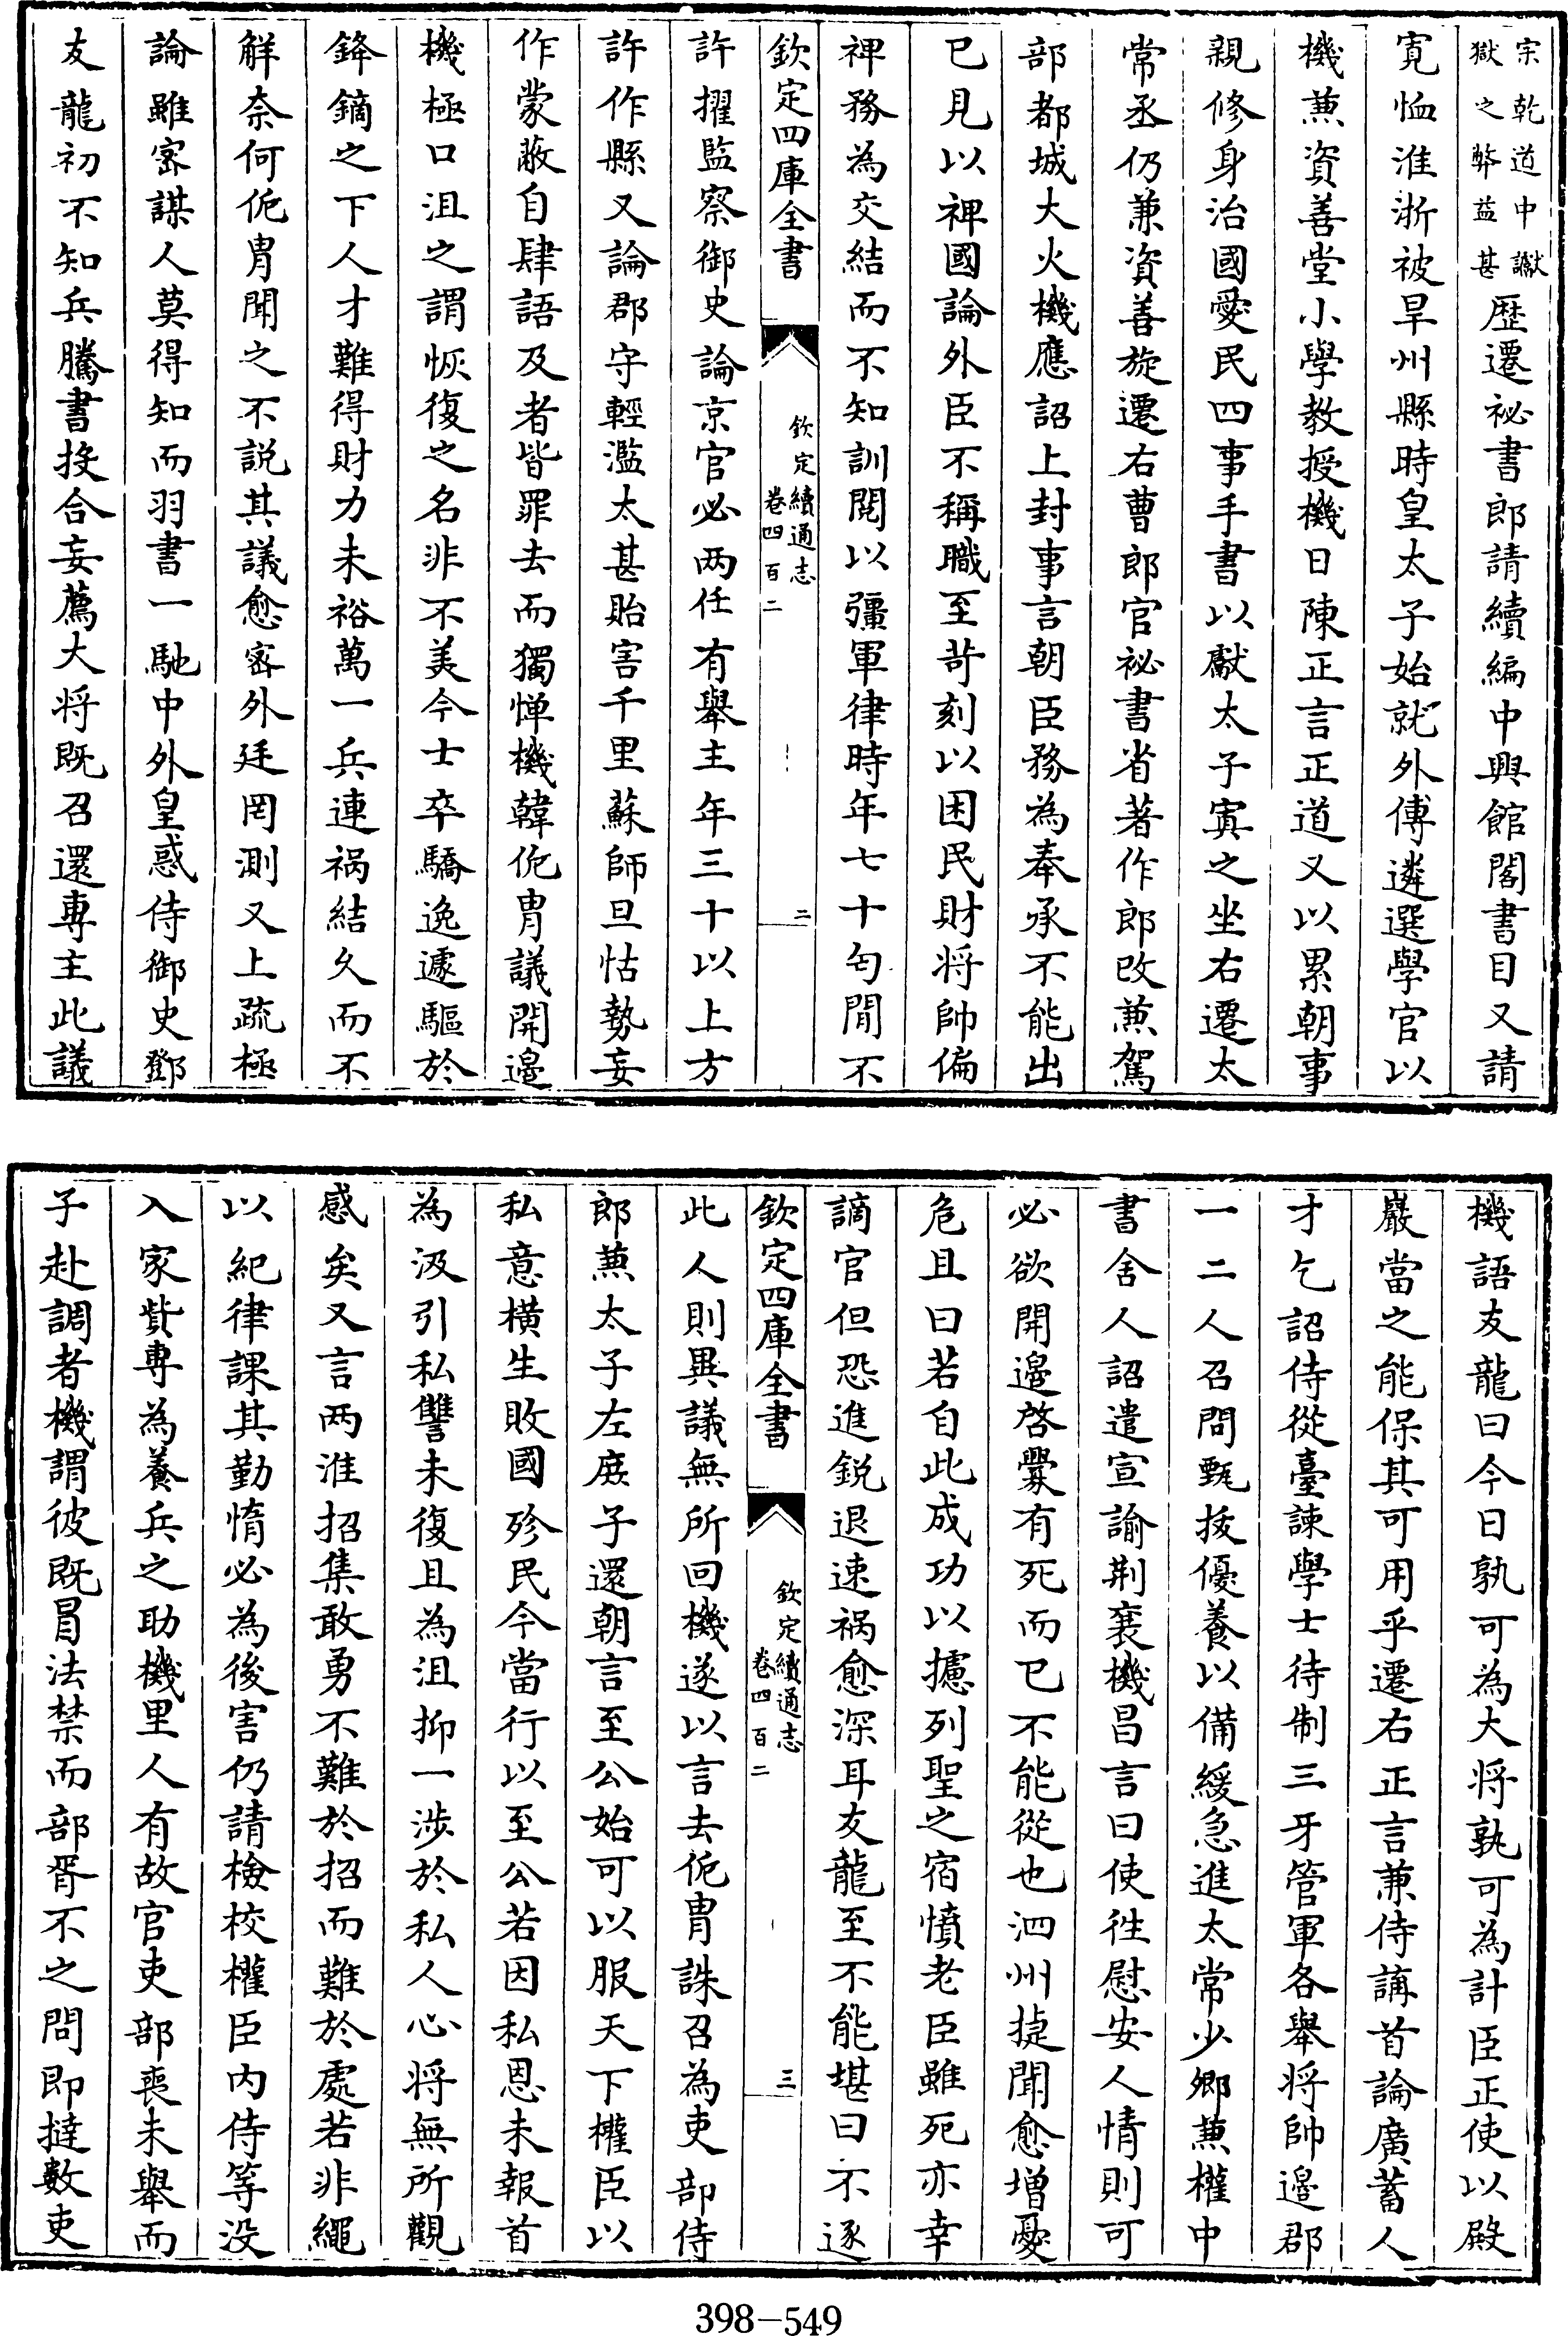 宗乾道中讞
獄之弊益甚
歴遷祕書郎請續編中興館閣書目又請
寛恤淮浙被旱州縣時皇太子始就外傅遴選學官以
機兼資善堂小學教授機日陳正言正道又以累朝事
親修身治國愛民四事手書以獻太子寘之坐右遷太
常丞仍兼資善旋遷右曹郎官祕書省著作郎改兼駕
部都城大火機應詔上封事言朝臣務為奉承不能出
已見以禆國論外臣不稱職至苛刻以困民財将帥偏
禆務為交結而不知訓閱以彊軍律時年七十匄閒不
欽定四庫全書
欽定續通志
卷四百二
二
許擢監察御史論京官必两任有舉主年三十以上方
許作縣又論郡守輕濫太甚貽害千里蘇師旦怙勢妄
作蒙蔽自肆語及者皆罪去而獨憚機韓侂胄議開邊
機極口沮之謂恢復之名非不美今士卒驕逸遽驅於
鋒鏑之下人才難得財力未裕萬一兵連禍結久而不
解奈何侂胄聞之不說其議愈宻外廷罔測又上疏極
論雖宻謀人莫得知而羽書一馳中外皇惑侍御史鄧
友龍初不知兵騰書投合妄薦大将既召還専主此議
機語友龍曰今日孰可為大将孰可為計臣正使以殿
巖當之能保其可用乎遷右正言兼侍講首論廣蓄人
才乞詔侍從臺諫學士待制三牙管軍各舉将帥邊郡
一二人召問甄抜優養以備緩急進太常少卿兼權中
書舍人詔遣宣諭荆襄機昌言曰使徃慰安人情則可
必欲開邊啓釁有死而已不能從也泗州捷聞愈增憂
危且曰若自此成功以攄列聖之宿憤老臣雖死亦幸
謫官但恐進鋭退速禍愈深耳友龍至不能堪曰不逐
欽定四庫全書
欽定續通志
卷四百二
三
此人則異議無所回機遂以言去侂胄誅召為吏部侍
郎兼太子左庻子還朝言至公始可以服天下權臣以
私意橫生敗國殄民今當行以至公若因私恩未報首
為汲引私讐未復且為沮抑一涉於私人心将無所觀
感矣又言两淮招集敢勇不難於招而難於處若非繩
以紀律課其勤惰必為後害仍請檢校權臣内侍等没
入家貲専為養兵之助機里人有故官吏部喪未舉而
子赴調者機謂彼既冒法禁而部胥不之問即撻數吏
398-549